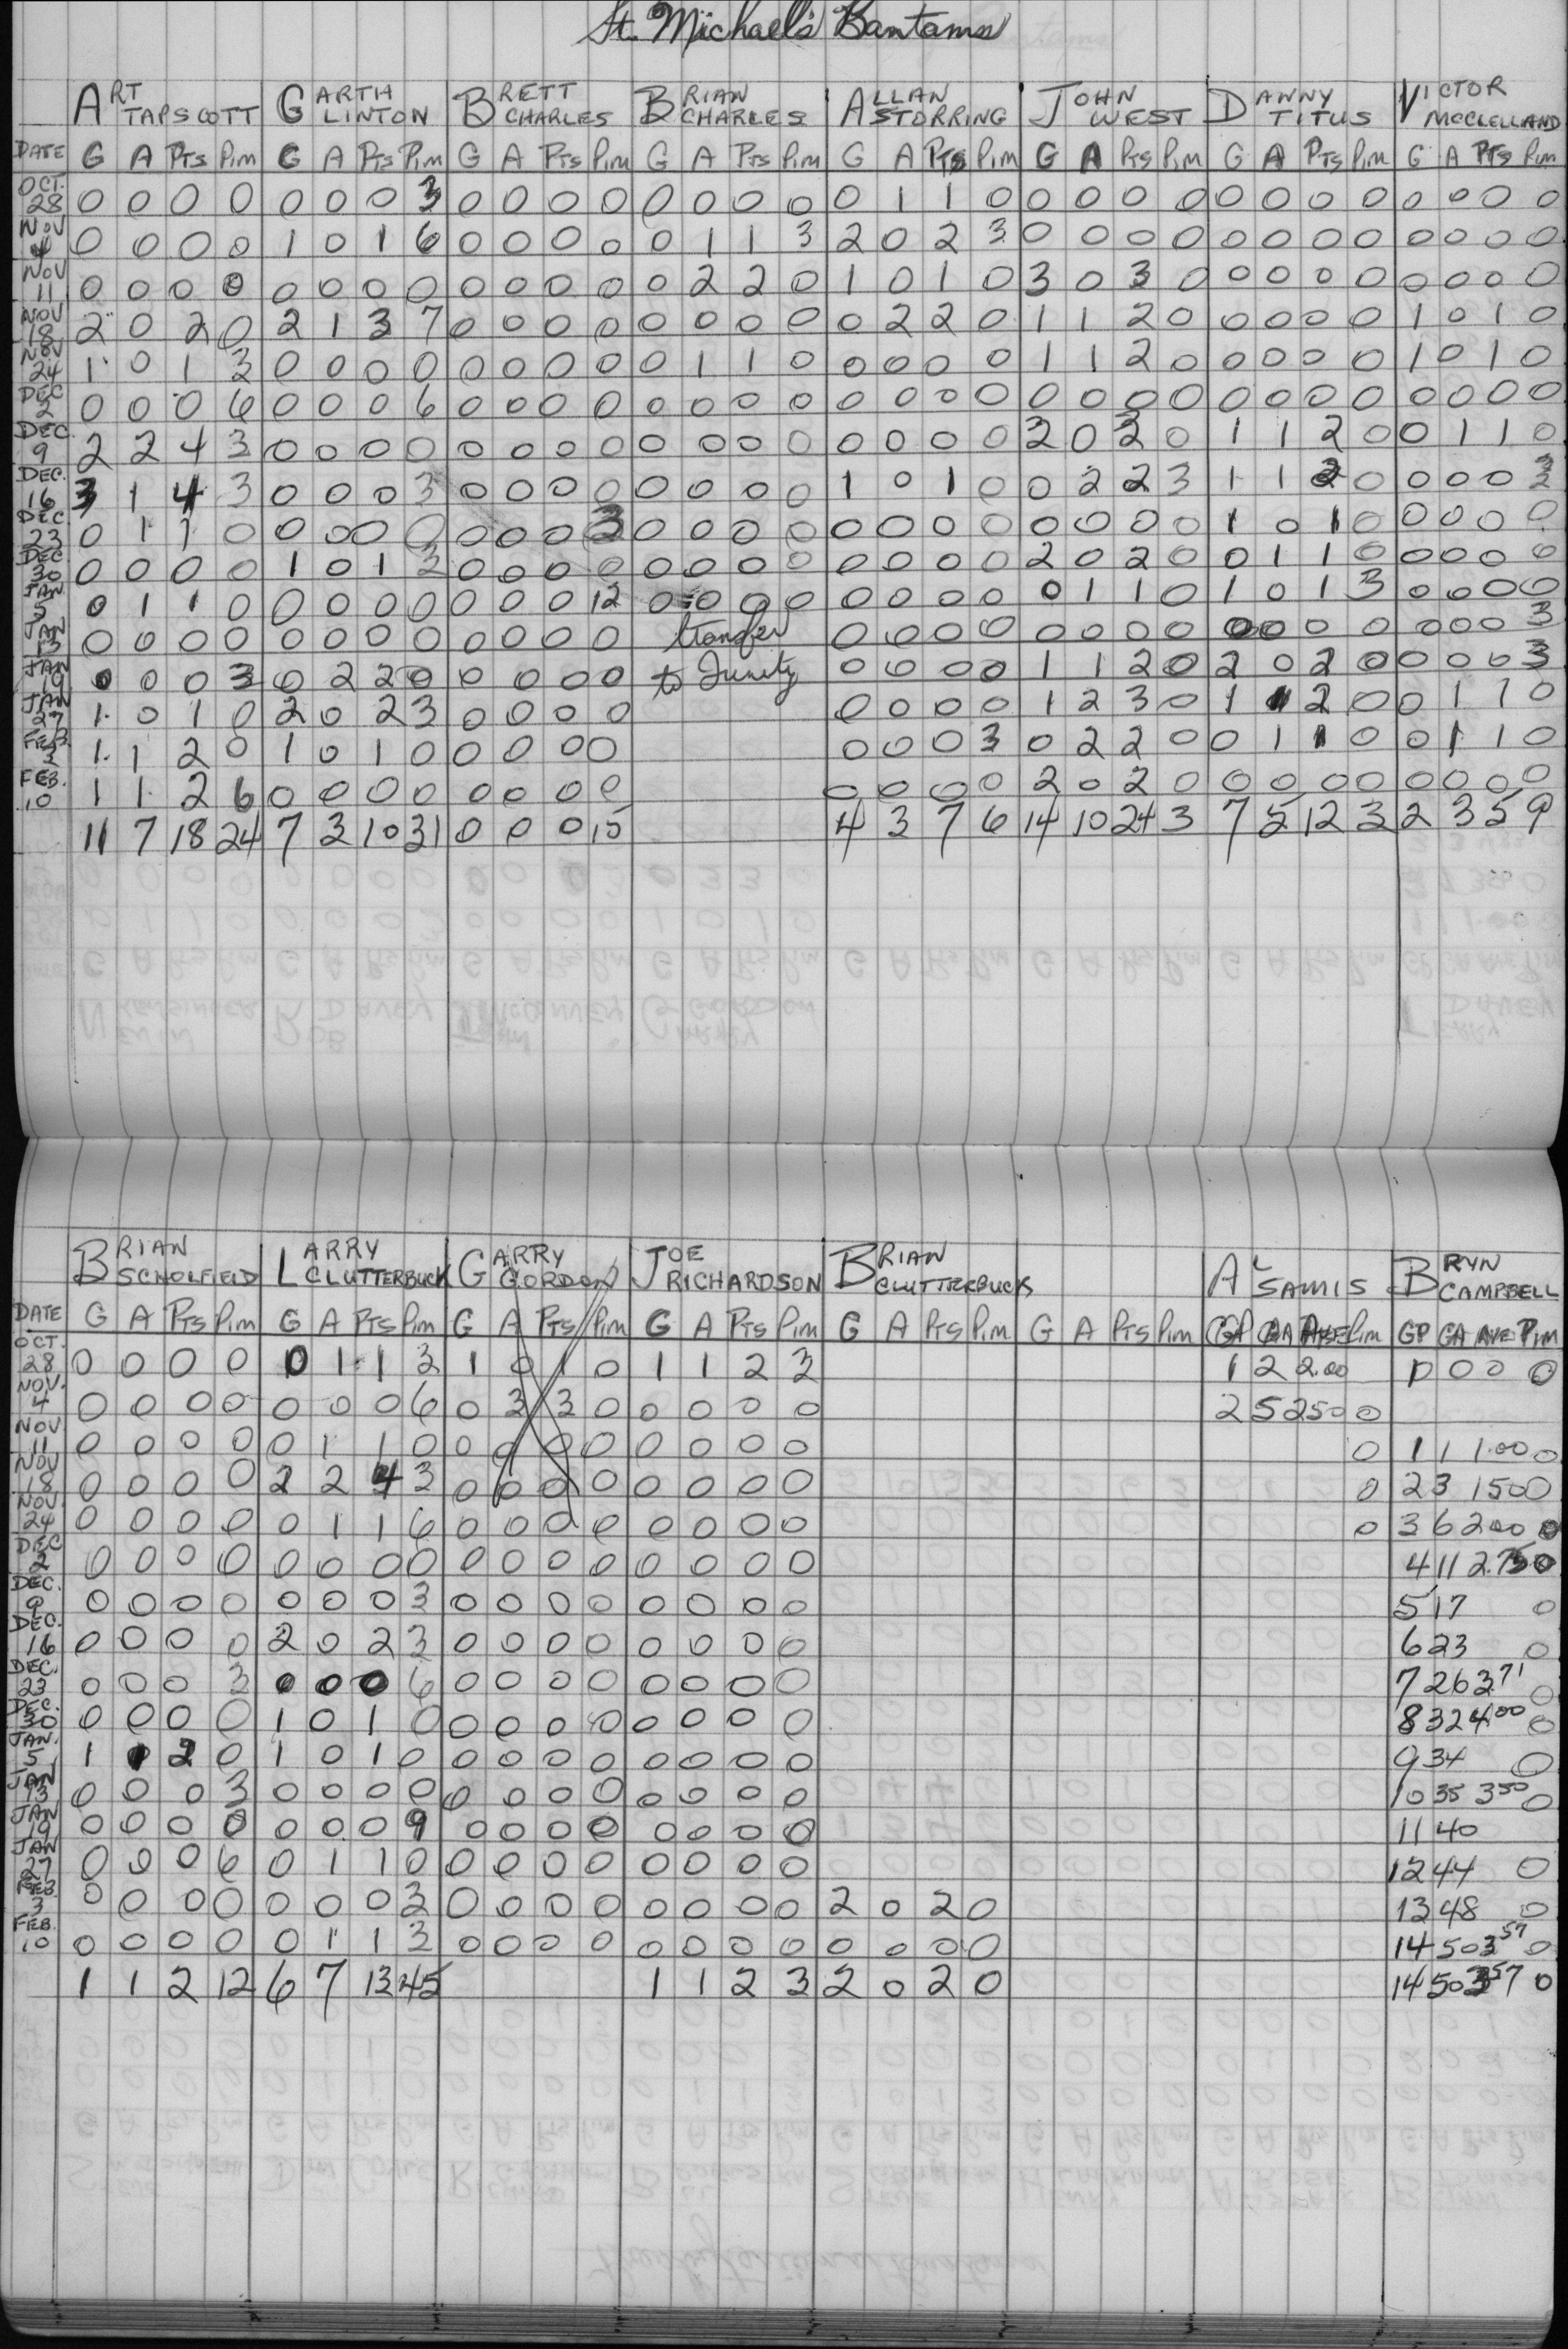 St. Michael's Bantams
ART TAPSCOTT GARTH LINTON BRETT CHARLES BRIAN CHARLES ALLAN STORRING JOHN WEST DANNY TITUS VICTOR MCCLELLAND
DATE G A PTS PIM G A PTS PIM G A PTS PIM G A PTS PIM G A PTS PIM G A PTS PIM G A PTS PIM G A PTS PIM
OCT. 28 0 0 0 0 0 0 0 3 0 0 0 0 0 0 0 0 0 1 1 0 0 0 0 0 0 0 0 0 0 0 0 0
NOV 4 0 0 0 0 1 0 1 6 0 0 0 0 0 1 1 3 2 0 2 3 0 0 0 0 0 0 0 0 0 0 0 0
NOV 11 0 0 0 0 0 0 0 0 0 0 0 0 0 2 2 0 1 0 1 0 3 0 3 0 0 0 0 0 0 0 0 0
NOV 18 2 0 2 0 2 1 3 7 0 0 0 0 0 0 0 0 0 2 2 0 1 1 2 0 0 0 0 0 1 0 1 0
NOV 24 1 0 1 3 0 0 0 0 0 0 0 0 0 1 1 0 0 0 0 0 1 1 2 0 0 0 0 0 1 0 1 0
DEC 2 0 0 0 6 0 0 0 6 0 0 0 0 0 0 0 0 0 0 0 0 0 0 0 0 0 0 0 0 0 0 0 0
DEC. 9 2 2 4 3 0 0 0 0 0 0 0 0 0 0 0 0 0 0 0 0 2 0 2 0 1 1 2 0 0 1 1 0
DEC. 16 3 1 4 3 0 0 0 3 0 0 0 0 0 0 0 0 1 0 1 0 0 2 2 3 1 1 2 0 0 0 0 3
DEC 23 0 1 1 0 0 0 0 0 0 0 0 3 0 0 0 0 0 0 0 0 0 0 0 0 1 0 1 0 0 0 0 0
DEC 30 0 0 0 0 1 0 1 3 0 0 0 0 0 0 0 0 0 0 0 0 2 0 2 0 0 1 1 0 0 0 0 0
JAN 5 0 1 1 0 0 0 0 0 0 0 0 12 0 0 0 0 0 0 0 0 0 1 1 0 1 0 1 3 0 0 0 0
JAN 13 0 0 0 0 0 0 0 0 0 0 0 0 transfer 0 0 0 0 0 0 0 0 0 0 0 0 0 0 0 3
JAN 19 0 0 0 3 0 2 2 0 0 0 0 0 to 0 0 0 0 1 1 2 0 2 0 2 0 0 0 0 3
JAN 27 1 0 1 0 2 0 2 3 0 0 0 0 0 0 0 0 1 2 3 0 1 1 2 0 0 1 1 0
FEB. 3 1 1 2 0 1 0 1 0 0 0 0 0 0 0 0 3 0 2 2 0 0 1 1 0 0 1 1 0
FEB. 10 1 1 2 6 0 0 0 0 0 0 0 0 0 0 0 0 2 0 2 0 0 0 0 0 0 0 0 0
11 7 18 24 7 3 10 31 0 0 0 15 4 3 7 6 14 10 24 3 7 5 12 3 2 3 5 9
BRIAN SCHOLFIELD LARRY CLUTTERBUCK GARRY GORDON JOE RICHARDSON BRIAN CLUTTERBUCK AL SAMIS BRYN CAMPBELL
DATE G A PTS PIM G A PTS PIM G A PTS PIM G A PTS PIM G A PTS PIM G A PTS PIM GP GA AVE PIM GP GA AVE PIM
OCT. 28 0 0 0 0 0 1 1 3 1 0 1 0 1 1 2 3 1 2 2.00 0 0 0
NOV. 4 0 0 0 0 0 0 0 6 0 3 3 0 0 0 0 0 2 5 250 0
NOV 11 0 0 0 0 0 1 1 0 0 0 0 0 0 0 0 0 0 1 1 1.00 0
NOV 18 0 0 0 0 2 2 4 3 0 0 0 0 0 0 0 0 0 2 3 150 0
NOV. 24 0 0 0 0 0 1 1 6 0 0 0 0 0 0 0 0 0 3 6 200 0
DEC 2 0 0 0 0 0 0 0 0 0 0 0 0 0 0 0 0 4 11 2.75 0
DEC. 9 0 0 0 0 0 0 0 3 0 0 0 0 0 0 0 0 5 17 0
DEC. 16 0 0 0 0 2 0 2 3 0 0 0 0 0 0 0 0 6 23 0
DEC. 23 0 0 0 3 0 0 0 6 0 0 0 0 0 0 0 0 7 26 3.71 0
DEC. 30 0 0 0 0 1 0 1 0 0 0 0 0 0 0 0 0 8 32 4.00 0
JAN. 5 1 1 2 0 1 0 1 0 0 0 0 0 0 0 0 0 9 34 0
JAN 13 0 0 0 3 0 0 0 0 0 0 0 0 0 0 0 0 10 35 350 0
JAN 19 0 0 0 0 0 0 0 9 0 0 0 0 0 0 0 0 11 40
JAN 27 0 0 0 6 0 1 1 0 0 0 0 0 0 0 0 0 12 44 0
FEB. 3 0 0 0 0 0 0 0 3 0 0 0 0 0 0 0 0 2 0 2 0 13 48 0
FEB. 10 0 0 0 0 0 1 1 3 0 0 0 0 0 0 0 0 0 0 0 0 14 50 357 0
1 1 2 12 6 7 13 45 1 1 2 3 2 0 2 0 14 50 357 0